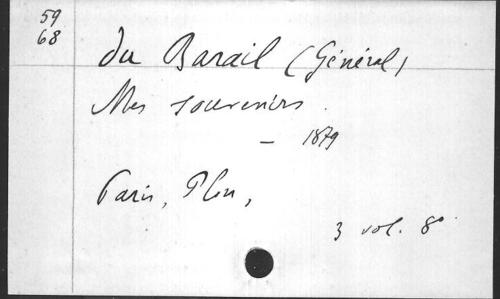 59
68
du Barail (Général)
Mes souvenirs.
— 1879
Paris, Plon,
3 vol. 8°